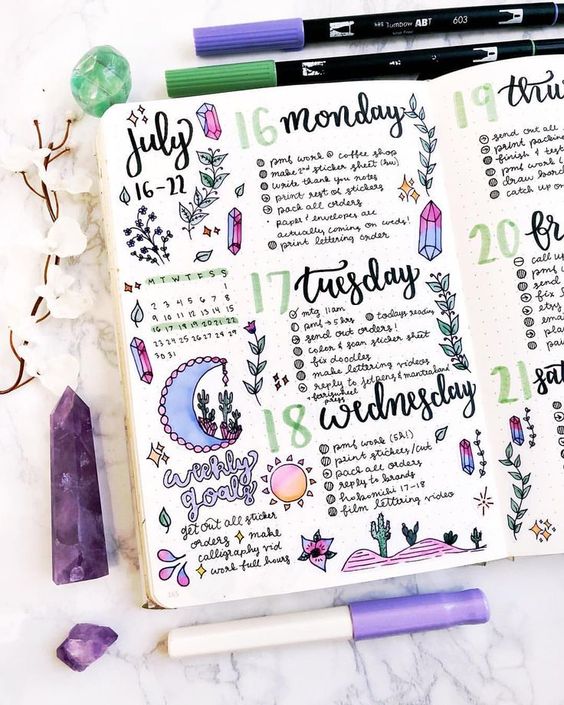 Tombow ABT
603
July
16-22
M T W T F S S
1
2 3 4 5 6 7 8
9 10 11 12 13 14 15
16 17 18 19 20 21 22
23 24 25 26 27 28 29
30 31
weekly
goals
get out all sticker
orders make
calligraphy vid
work full hours
165
16 monday
pmf work @ coffee shop
make 2nd sticker sheet
write thank you notes
print rest of stickers
pack all orders
paper & envelopes are
actually coming on weds!
print lettering order
17 tuesday
mtg 11am
pmf → 5 hrs
todays ready
send out orders!
color & scan sticker sheet
fix doodles
make lettering videos
reply to jetpens &
press
18 wednesday
pmf work (5h!)
print stickers/cut
pack all orders
reply to brands
hobonichi 17-18
film lettering video
19 thu
send out all
print packing
finish & test
pmf work
draw
catch up on
20 fr
call up
pmf
send
fix
etsy
email
play
print
21 sat